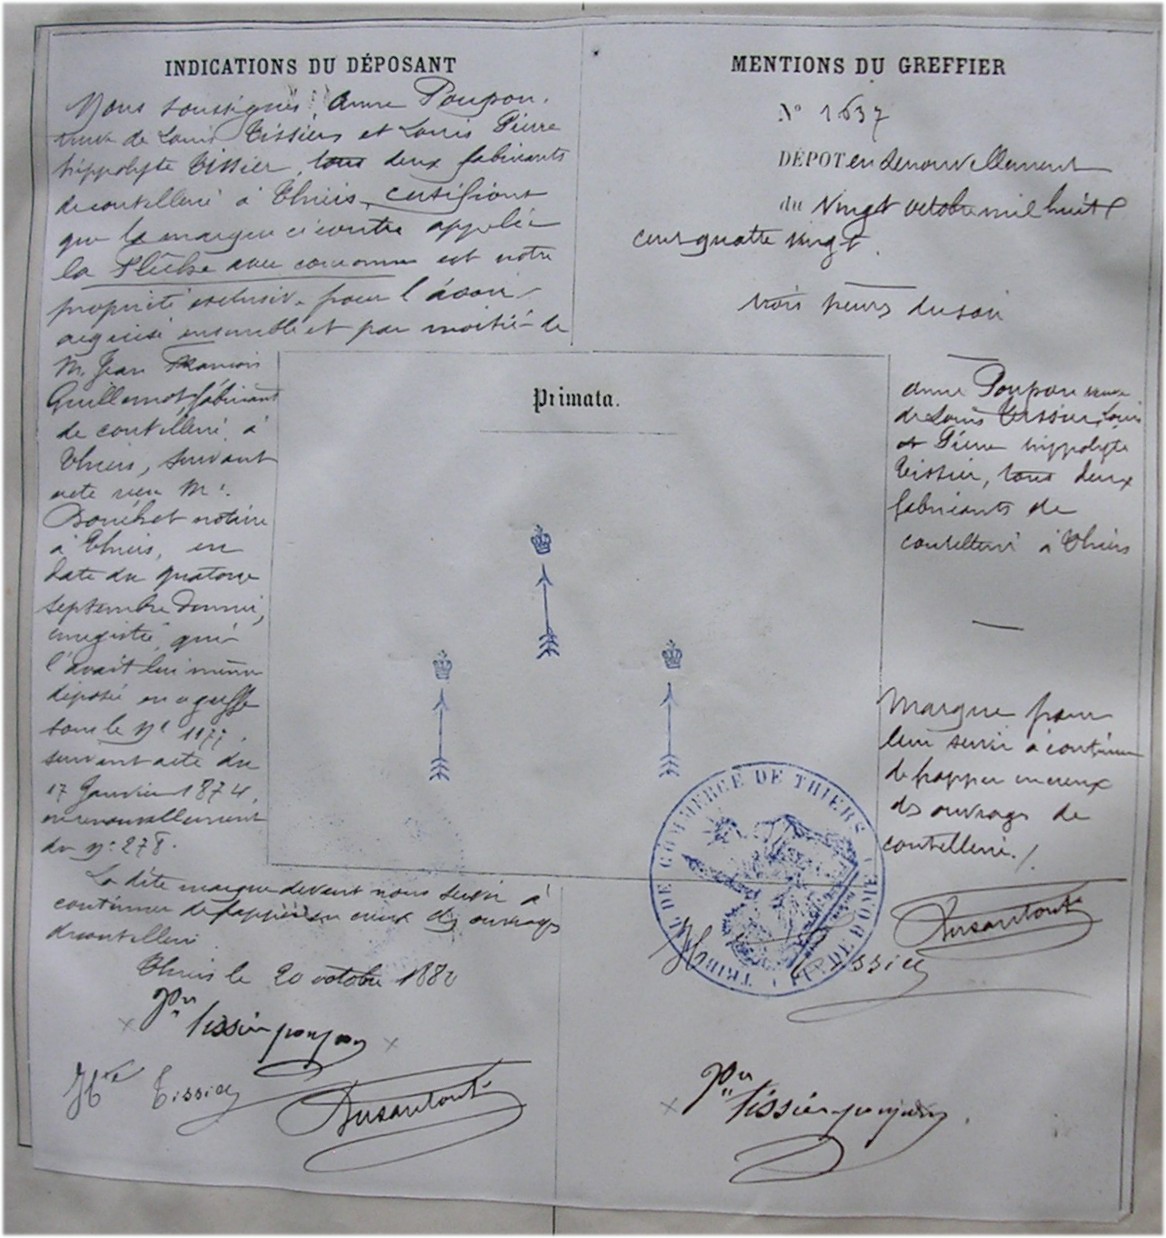 INDICATIONS DU DÉPOSANT
Nous soussignés, Anne Poupon,
veuve de Louis Tissier et Louis Pierre
hippolyte Tissier, tous deux fabricants
de coutellerie à Thiers, certifions
que la marque ci contre appelée
la Flèche avec couronne est notre
propriété exclusive pour l'avoir
acquise ensemble et par moitié de
M. Jean François
Guillemot fabricant
de coutellerie à
Thiers, suivant
acte reçu Me.
notaire
à Thiers, en
date du quatorze
septembre dernier,
enregistré, qui
l'avait lui même
déposée au greffe
sous le No 1177,
suivant acte du
17 Janvier 1874,
en renouvellement
du No 278.
La dite marque devant nous servir à
continuer de frapper en creux des ouvrages
de coutellerie.
Thiers le 20 octobre 1880
Tissier poupon
Hte Tissier
MENTIONS DU GREFFIER
No 1637
DÉPOT en renouvellement
du Vingt octobre mil huit
cent quatre vingt.
trois heures du soir
Primata.
Anne Poupon veuve
de Louis Tissier, Louis
et Pierre hippolyte
Tissier, tous deux
fabricants de
coutellerie à Thiers
Marque pour
leur servir à continuer
de frapper en creux
des ouvrages de
coutellerie.
TRIBUNAL DE COMMERCE DE THIERS (PUY-DE-DOME)
Hte Tissier
Tissier poupon